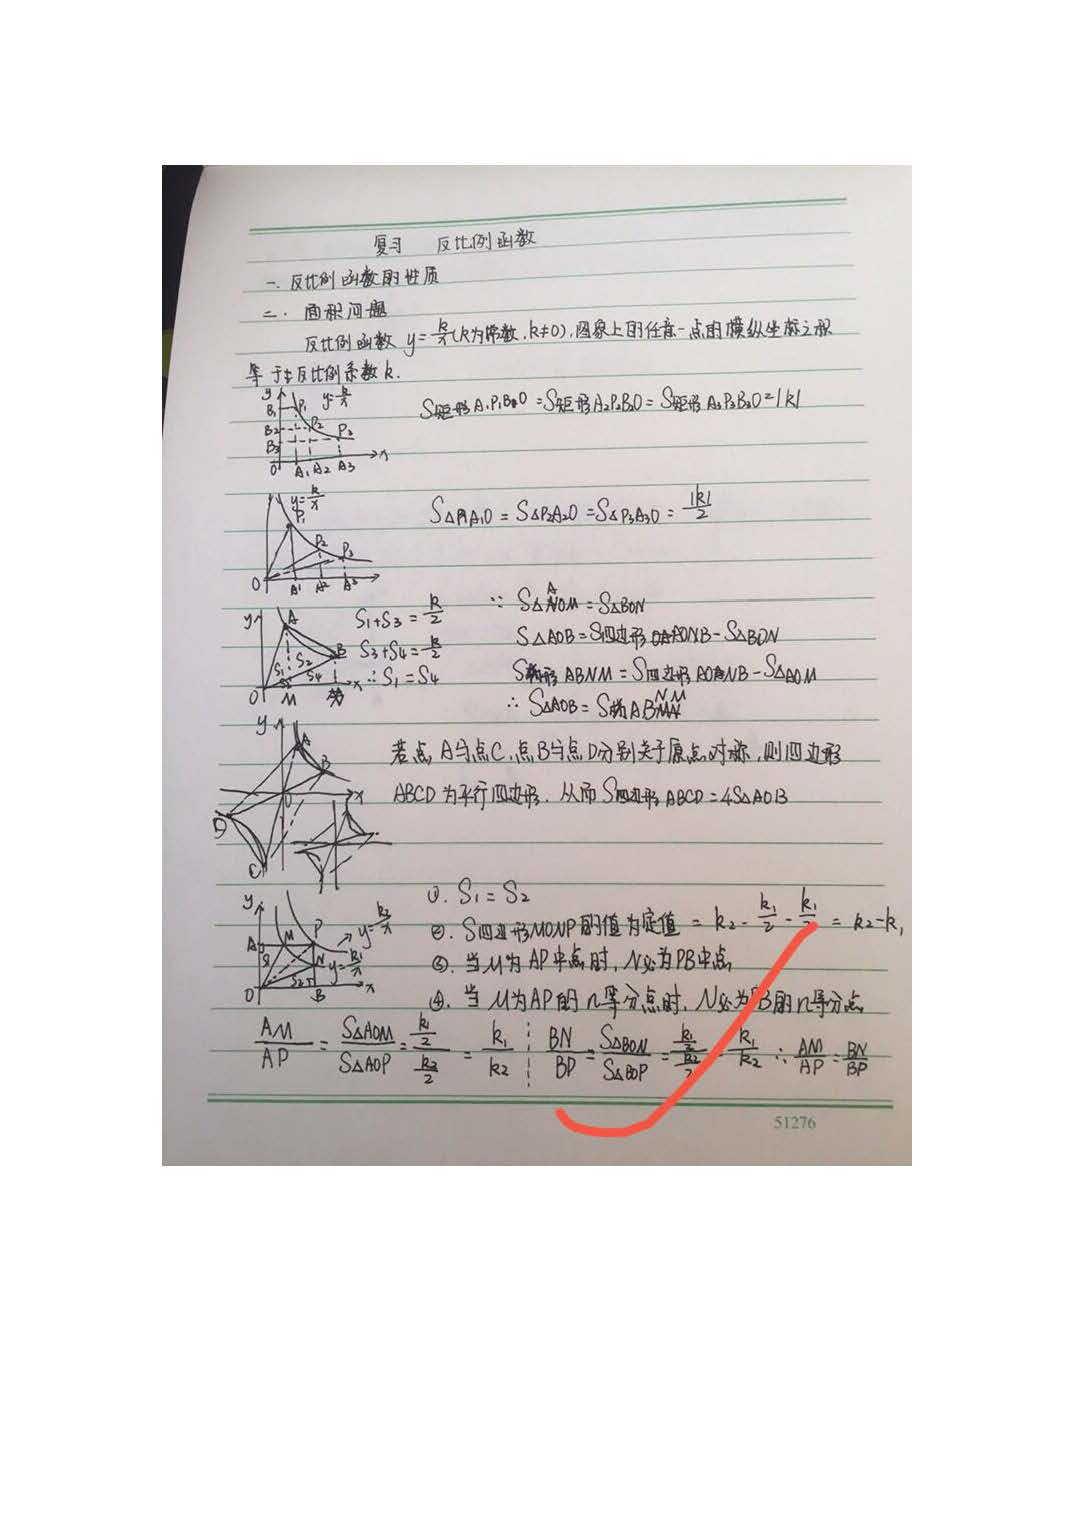 复习 反比例函数
一. 反比例函数的性质
二. 面积问题
反比例函数 y=k/x (k为常数, k≠0), 图象上的任意一点的横纵坐标之积
等于反比例系数k.
y B₁ P₁ y=k/x
B₂ P₂
B₃ P₃
O A₁ A₂ A₃ x
S矩形A₁P₁B₁O = S矩形A₂P₂B₂O = S矩形A₃P₃B₃O = |k|
y=k/x
P₁
P₂ P₃
O A₁ A₂ A₃
S△P₁A₁O = S△P₂A₂O = S△P₃A₃O = |k|/2
y A
B
S₁ S₂
S₃ S₄
O M N x
S₁+S₃=k/2
S₃+S₄=k/2
∴S₁=S₄
∵ S△AOM = S△BON
S△AOB = S四边形AONB - S△BON
S梯形ABNM = S四边形AONB - S△AOM
∴ S△AOB = S梯ABNM
y A
B
O x
D
C
若点A与点C, 点B与点D分别关于原点对称, 则四边形
ABCD为平行四边形. 从而S四边形ABCD=4S△AOB
y
A M P y=k₂/x
S₁ N y=k₁/x
S₂
O B x
①. S₁=S₂
②. S四边形MONP的值为定值 = k₂ - k₁/2 - k₁/2 = k₂-k₁
③. 当M为AP中点时, N必为PB中点
④. 当M为AP的n等分点时, N必为PB的n等分点
AM/AP = S△AOM/S△AOP = (k₁/2)/(k₂/2) = k₁/k₂ BN/BP = S△BON/S△BOP = (k₁/2)/(k₂/2) = k₁/k₂ ∴ AM/AP = BN/BP
51276